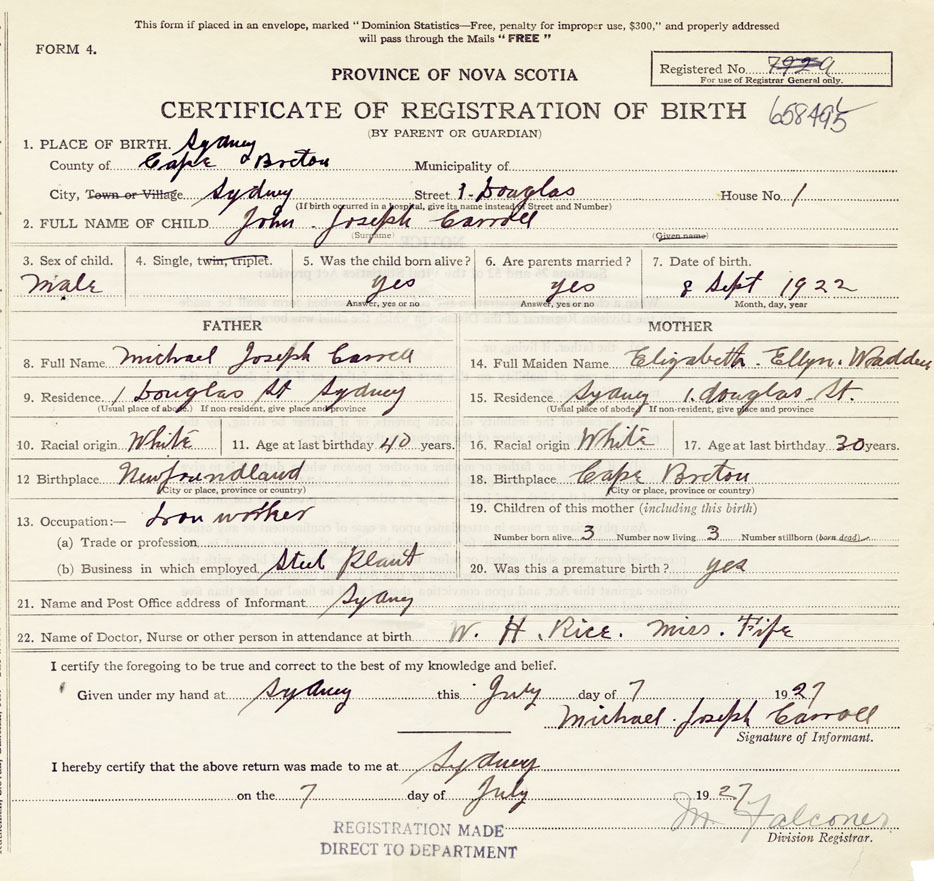 This form if placed in an envelope, marked "Dominion Statistics—Free, penalty for improper use, $300," and properly addressed
will pass through the Mails "FREE"
FORM 4.
PROVINCE OF NOVA SCOTIA
Registered No.
For use of Registrar General only.
CERTIFICATE OF REGISTRATION OF BIRTH 658495
(BY PARENT OR GUARDIAN)
1. PLACE OF BIRTH. Sydney
County of Cape Breton Municipality of
City, Town or Village Sydney Street 1. Douglas House No. 1
(If birth occurred in a hospital, give its name instead of Street and Number)
2. FULL NAME OF CHILD John Joseph Carroll
(Surname) (Given name)
3. Sex of child. 4. Single, twin, triplet. 5. Was the child born alive? 6. Are parents married? 7. Date of birth.
Male yes yes 8 Sept 1922
Answer, yes or no Answer, yes or no Month, day, year
FATHER MOTHER
8. Full Name Michael Joseph Carroll 14. Full Maiden Name Elizabeth Ellyn Wadden
9. Residence 1 Douglas St Sydney 15. Residence Sydney 1. douglas St.
(Usual place of abode.) If non-resident, give place and province (Usual place of abode) If non-resident, give place and province
10. Racial origin White 11. Age at last birthday 40 years. 16. Racial origin White 17. Age at last birthday 30 years.
12 Birthplace Newfoundland 18. Birthplace Cape Breton
(City or place, province or country) (City or place, province or country)
13. Occupation:— Iron worker 19. Children of this mother (including this birth)
(a) Trade or profession Number born alive 3 Number now living 3 Number stillborn (born dead)
(b) Business in which employed Steel Plant 20. Was this a premature birth? yes
21. Name and Post Office address of Informant Sydney
22. Name of Doctor, Nurse or other person in attendance at birth W. H. Rice. Miss. Fife
I certify the foregoing to be true and correct to the best of my knowledge and belief.
Given under my hand at Sydney this July day of 7 1927
Michael Joseph Carroll
Signature of Informant.
I hereby certify that the above return was made to me at Sydney
on the 7 day of July 1927
M. Falconer
Division Registrar.
REGISTRATION MADE
DIRECT TO DEPARTMENT